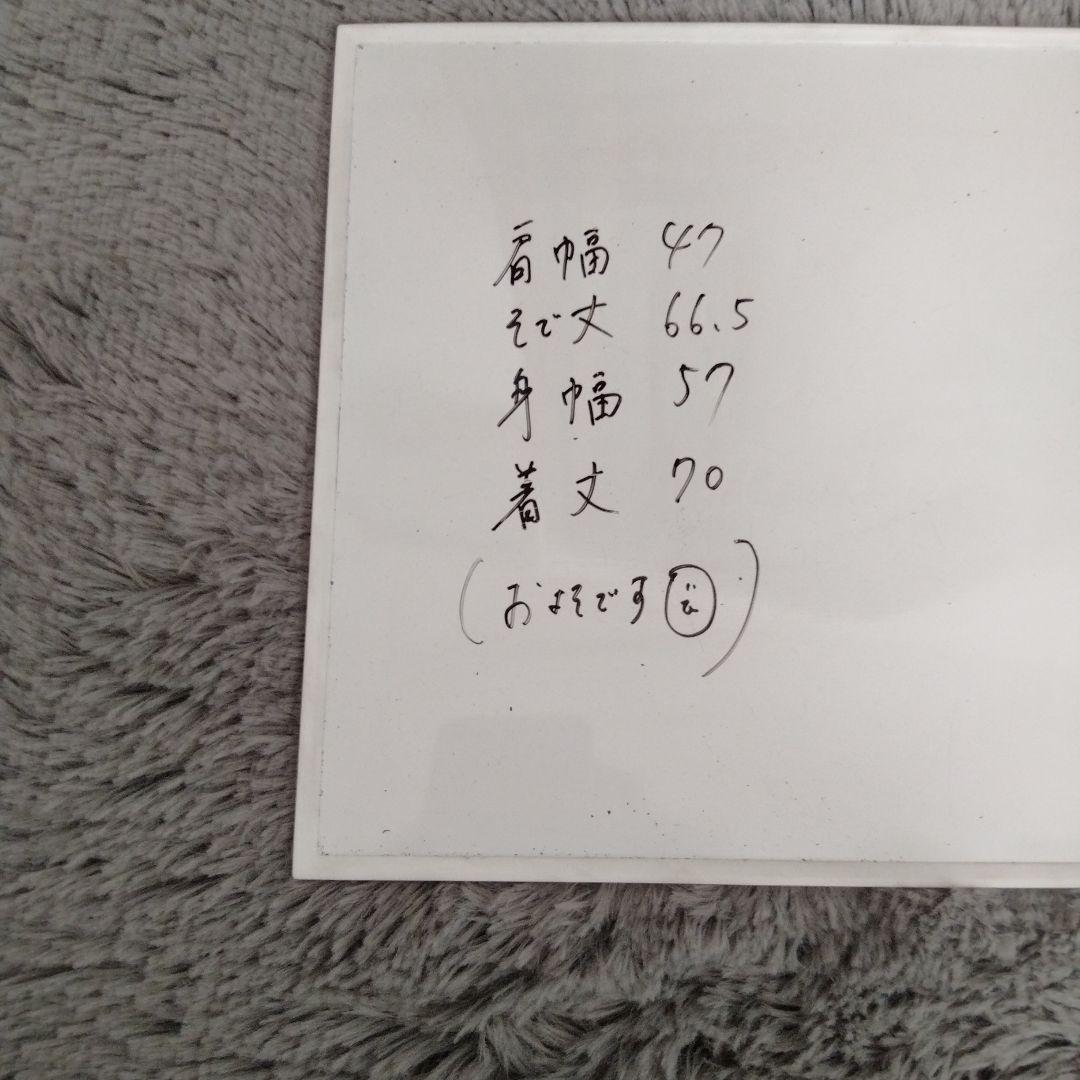 肩幅 47
そで丈 66.5
身幅 57
着丈 70
(およそです)